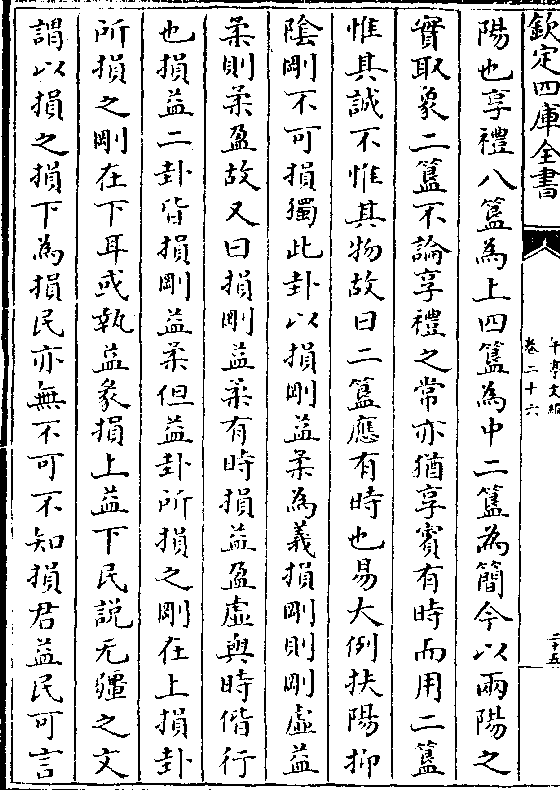 欽定四庫全書
卷二十六
二十五
陽也享禮八簋為上四簋為中二簋為簡今以兩陽之
實取象二簋不論享禮之常亦猶享賓有時而用二簋
惟其誠不惟其物故曰二簋應有時也易大例扶陽抑
陰剛不可損獨此卦以損剛益柔為義損剛則剛虛益
柔則柔盈故又曰損剛益柔有時損益盈虛與時偕行
也損益二卦皆損剛益柔但益卦所損之剛在上損卦
所損之剛在下耳或執益彖損上益下民説无疆之文
謂以損之損下為損民亦無不可不知損君益民可言